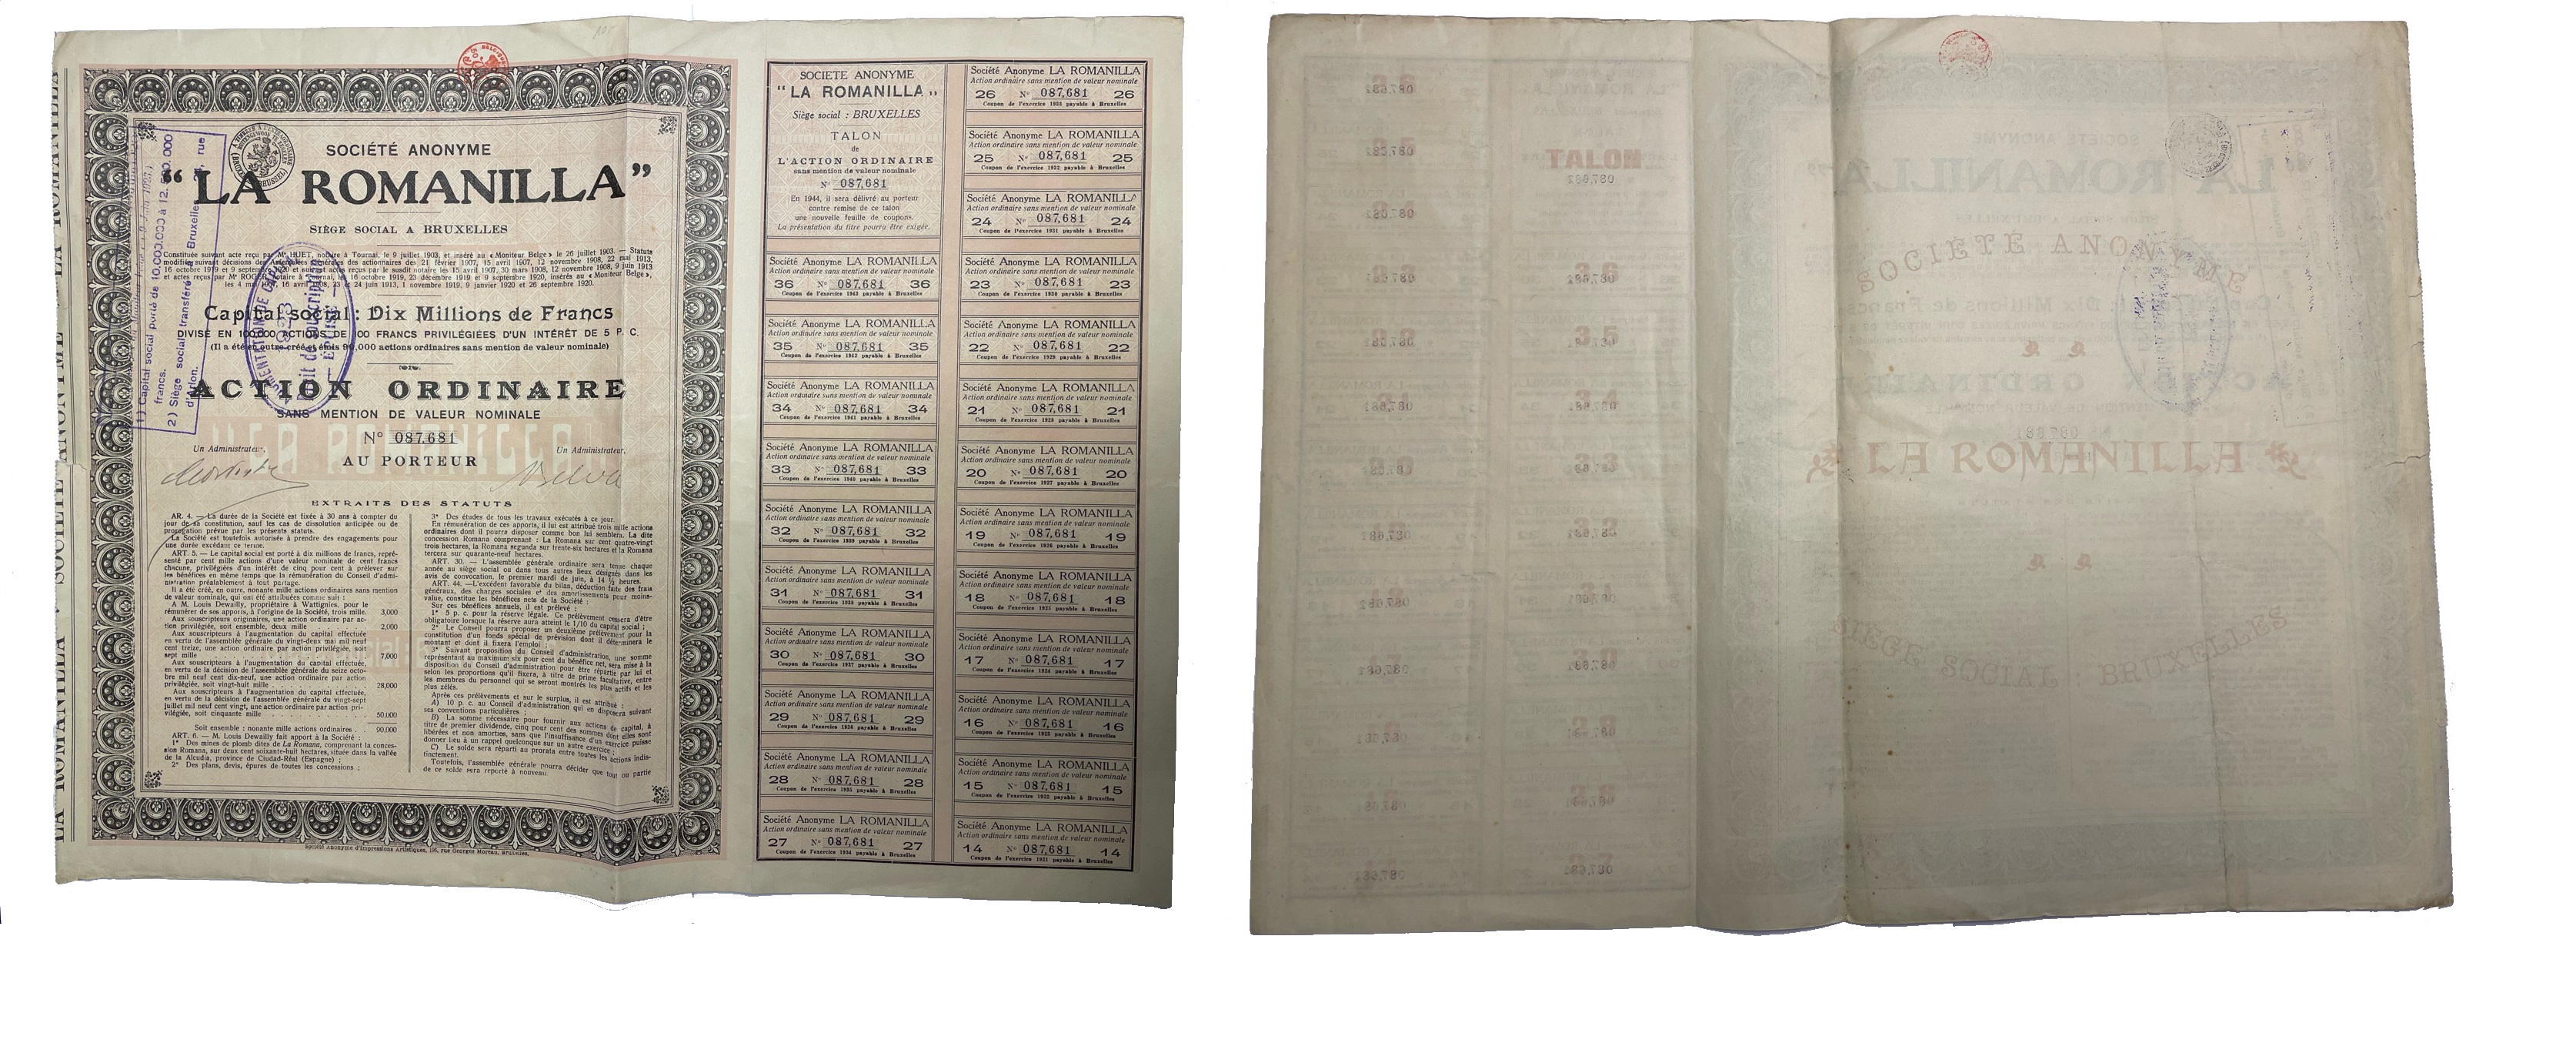 SOCIÉTÉ ANONYME
“LA ROMANILLA”
SIÈGE SOCIAL A BRUXELLES
Constituée suivant acte reçu par Mᵉ HUET, notaire à Tournai, le 9 juillet 1903, et inséré au « Moniteur Belge » le 26 juillet 1903. — Statuts
modifiés suivant décisions des Assemblées générales des actionnaires des 21 février 1907, 15 avril 1907, 12 novembre 1908, 22 mai 1913,
16 octobre 1919 et 9 septembre 1920 et suivant actes reçus par le susdit notaire les 15 avril 1907, 30 mars 1908, 12 novembre 1908, 9 juin 1913
et actes reçus par Mᵉ ROGER, notaire à Tournai, les 16 octobre 1919, 23 décembre 1919 et 9 septembre 1920, insérés au « Moniteur Belge »,
les 4 mai 1907, 16 avril 1908, 23 et 24 juin 1913, 1 novembre 1919, 9 janvier 1920 et 26 septembre 1920.
Capital social : Dix Millions de Francs
DIVISÉ EN 100.000 ACTIONS DE 100 FRANCS PRIVILÉGIÉES D'UN INTÉRÊT DE 5 P. C.
(Il a été en outre créé et émis 90.000 actions ordinaires sans mention de valeur nominale)
ACTION ORDINAIRE
SANS MENTION DE VALEUR NOMINALE
N° 087,681
Un Administrateur, Un Administrateur,
AU PORTEUR
EXTRAITS DES STATUTS
AR. 4. — La durée de la Société est fixée à 30 ans à compter du
jour de sa constitution, sauf les cas de dissolution anticipée ou de
prorogation prévue par les présents statuts.
La Société est toutefois autorisée à prendre des engagements pour
une durée excédant ce terme.
ART. 5. — Le capital social est porté à dix millions de francs, repré-
senté par cent mille actions d'une valeur nominale de cent francs
chacune, privilégiées d'un intérêt de cinq pour cent à prélever sur
les bénéfices en même temps que la rémunération du Conseil d'admi-
nistration préalablement à tout partage.
Il a été créé, en outre, nonante mille actions ordinaires sans mention
de valeur nominale, qui ont été attribuées comme suit :
A M. Louis Dewailly, propriétaire à Wattignies, pour le
rémunérer de ses apports, à l'origine de la Société, trois mille. 3,000
Aux souscripteurs originaires, une action ordinaire par ac-
tion privilégiée, soit ensemble, deux mille 2,000
Aux souscripteurs à l'augmentation du capital effectuée
en vertu de l'assemblée générale du vingt-deux mai mil neuf
cent treize, une action ordinaire par action privilégiée, soit
sept mille 7,000
Aux souscripteurs à l'augmentation du capital effectuée,
en vertu de la décision de l'assemblée générale du seize octo-
bre mil neuf cent dix-neuf, une action ordinaire par action
privilégiée, soit vingt-huit mille 28,000
Aux souscripteurs à l'augmentation du capital effectuée,
en vertu de la décision de l'assemblée générale du vingt-sept
juillet mil neuf cent vingt, une action ordinaire par action pri-
vilégiée, soit cinquante mille 50.000
Soit ensemble : nonante mille actions ordinaires 90,000
ART. 6. — M. Louis Dewailly fait apport à la Société :
1° Des mines de plomb dites de La Romana, comprenant la conces-
sion Romana, sur deux cent soixante-huit hectares, située dans la vallée
de la Alcudia, province de Ciudad-Réal (Espagne) ;
2° Des plans, devis, épures de toutes les concessions ;
3° Des études de tous les travaux exécutés à ce jour.
En rémunération de ces apports, il lui est attribué trois mille actions
ordinaires dont il pourra disposer comme bon lui semblera. La dite
concession Romana comprenant : La Romana sur cent quatre-vingt
trois hectares, la Romana segunda sur trente-six hectares et la Romana
tercera sur quarante-neuf hectares.
ART. 30. — L'assemblée générale ordinaire sera tenue chaque
année au siège social ou dans tous autres lieux désignés dans les
avis de convocation, le premier mardi de juin, à 14 ½ heures.
ART. 44. — L'excédent favorable du bilan, déduction faite des frais
généraux, des charges sociales et des amortissements pour moins-
value, constitue les bénéfices nets de la Société :
Sur ces bénéfices annuels, il est prélevé :
1° 5 p. c. pour la réserve légale. Ce prélèvement cessera d'être
obligatoire lorsque la réserve aura atteint le 1/10 du capital social ;
2° Le Conseil pourra proposer un deuxième prélèvement pour la
constitution d'un fonds spécial de prévision dont il déterminera le
montant et dont il fixera l'emploi ;
3° Suivant proposition du Conseil d'administration, une somme
représentant au maximum six pour cent du bénéfice net, sera mise à la
disposition du Conseil d'administration pour être répartie par lui et
selon les proportions qu'il fixera, à titre de prime facultative, entre
les membres du personnel qui se seront montrés les plus actifs et les
plus zélés.
Après ces prélèvements et sur le surplus, il est attribué :
A) 10 p. c. au Conseil d'administration qui en disposera suivant
ses conventions particulières ;
B) La somme nécessaire pour fournir aux actions de capital, à
titre de premier dividende, cinq pour cent des sommes dont elles sont
libérées et non amorties, sans que l'insuffisance d'un exercice puisse
donner lieu à un rappel quelconque sur un autre exercice ;
C) Le solde sera réparti au prorata entre toutes les actions indis-
tinctement.
Toutefois, l'assemblée générale pourra décider que tout ou partie
de ce solde sera reporté à nouveau
Société Anonyme d'Impressions Artistiques, 196, rue Georges Moreau, Bruxelles.
1) Capital social porté de 10.000.000 à 12.500.000
francs.
2) Siège social transféré à Bruxelles, rue
d'Arlon.
AUGMENTATION DE CAPITAL
1923
Droit de souscription
EPUISÉ
SOCIETE ANONYME
“LA ROMANILLA„
Siège social : BRUXELLES
TALON
de
L'ACTION ORDINAIRE
sans mention de valeur nominale
N° 087,681
En 1944, il sera délivré au porteur
contre remise de ce talon
une nouvelle feuille de coupons.
La présentation du titre pourra être exigée.
Société Anonyme LA ROMANILLA
Action ordinaire sans mention de valeur nominale
36 N° 087,681 36
Coupon de l'exercice 1943 payable à Bruxelles
Société Anonyme LA ROMANILLA
Action ordinaire sans mention de valeur nominale
35 N° 087,681 35
Coupon de l'exercice 1942 payable à Bruxelles
Société Anonyme LA ROMANILLA
Action ordinaire sans mention de valeur nominale
34 N° 087,681 34
Coupon de l'exercice 1941 payable à Bruxelles
Société Anonyme LA ROMANILLA
Action ordinaire sans mention de valeur nominale
33 N° 087,681 33
Coupon de l'exercice 1940 payable à Bruxelles
Société Anonyme LA ROMANILLA
Action ordinaire sans mention de valeur nominale
32 N° 087,681 32
Coupon de l'exercice 1939 payable à Bruxelles
Société Anonyme LA ROMANILLA
Action ordinaire sans mention de valeur nominale
31 N° 087,681 31
Coupon de l'exercice 1938 payable à Bruxelles
Société Anonyme LA ROMANILLA
Action ordinaire sans mention de valeur nominale
30 N° 087,681 30
Coupon de l'exercice 1937 payable à Bruxelles
Société Anonyme LA ROMANILLA
Action ordinaire sans mention de valeur nominale
29 N° 087,681 29
Coupon de l'exercice 1936 payable à Bruxelles
Société Anonyme LA ROMANILLA
Action ordinaire sans mention de valeur nominale
28 N° 087,681 28
Coupon de l'exercice 1935 payable à Bruxelles
Société Anonyme LA ROMANILLA
Action ordinaire sans mention de valeur nominale
27 N° 087,681 27
Coupon de l'exercice 1934 payable à Bruxelles
Société Anonyme LA ROMANILLA
Action ordinaire sans mention de valeur nominale
26 N° 087,681 26
Coupon de l'exercice 1933 payable à Bruxelles
Société Anonyme LA ROMANILLA
Action ordinaire sans mention de valeur nominale
25 N° 087,681 25
Coupon de l'exercice 1932 payable à Bruxelles
Société Anonyme LA ROMANILLA
Action ordinaire sans mention de valeur nominale
24 N° 087,681 24
Coupon de l'exercice 1931 payable à Bruxelles
Société Anonyme LA ROMANILLA
Action ordinaire sans mention de valeur nominale
23 N° 087,681 23
Coupon de l'exercice 1930 payable à Bruxelles
Société Anonyme LA ROMANILLA
Action ordinaire sans mention de valeur nominale
22 N° 087,681 22
Coupon de l'exercice 1929 payable à Bruxelles
Société Anonyme LA ROMANILLA
Action ordinaire sans mention de valeur nominale
21 N° 087,681 21
Coupon de l'exercice 1928 payable à Bruxelles
Société Anonyme LA ROMANILLA
Action ordinaire sans mention de valeur nominale
20 N° 087,681 20
Coupon de l'exercice 1927 payable à Bruxelles
Société Anonyme LA ROMANILLA
Action ordinaire sans mention de valeur nominale
19 N° 087,681 19
Coupon de l'exercice 1926 payable à Bruxelles
Société Anonyme LA ROMANILLA
Action ordinaire sans mention de valeur nominale
18 N° 087,681 18
Coupon de l'exercice 1925 payable à Bruxelles
Société Anonyme LA ROMANILLA
Action ordinaire sans mention de valeur nominale
17 N° 087,681 17
Coupon de l'exercice 1924 payable à Bruxelles
Société Anonyme LA ROMANILLA
Action ordinaire sans mention de valeur nominale
16 N° 087,681 16
Coupon de l'exercice 1923 payable à Bruxelles
Société Anonyme LA ROMANILLA
Action ordinaire sans mention de valeur nominale
15 N° 087,681 15
Coupon de l'exercice 1922 payable à Bruxelles
Société Anonyme LA ROMANILLA
Action ordinaire sans mention de valeur nominale
14 N° 087,681 14
Coupon de l'exercice 1921 payable à Bruxelles
TALON
36
35
34
SOCIETE ANONYME
LA ROMANILLA
SIEGE SOCIAL : BRUXELLES